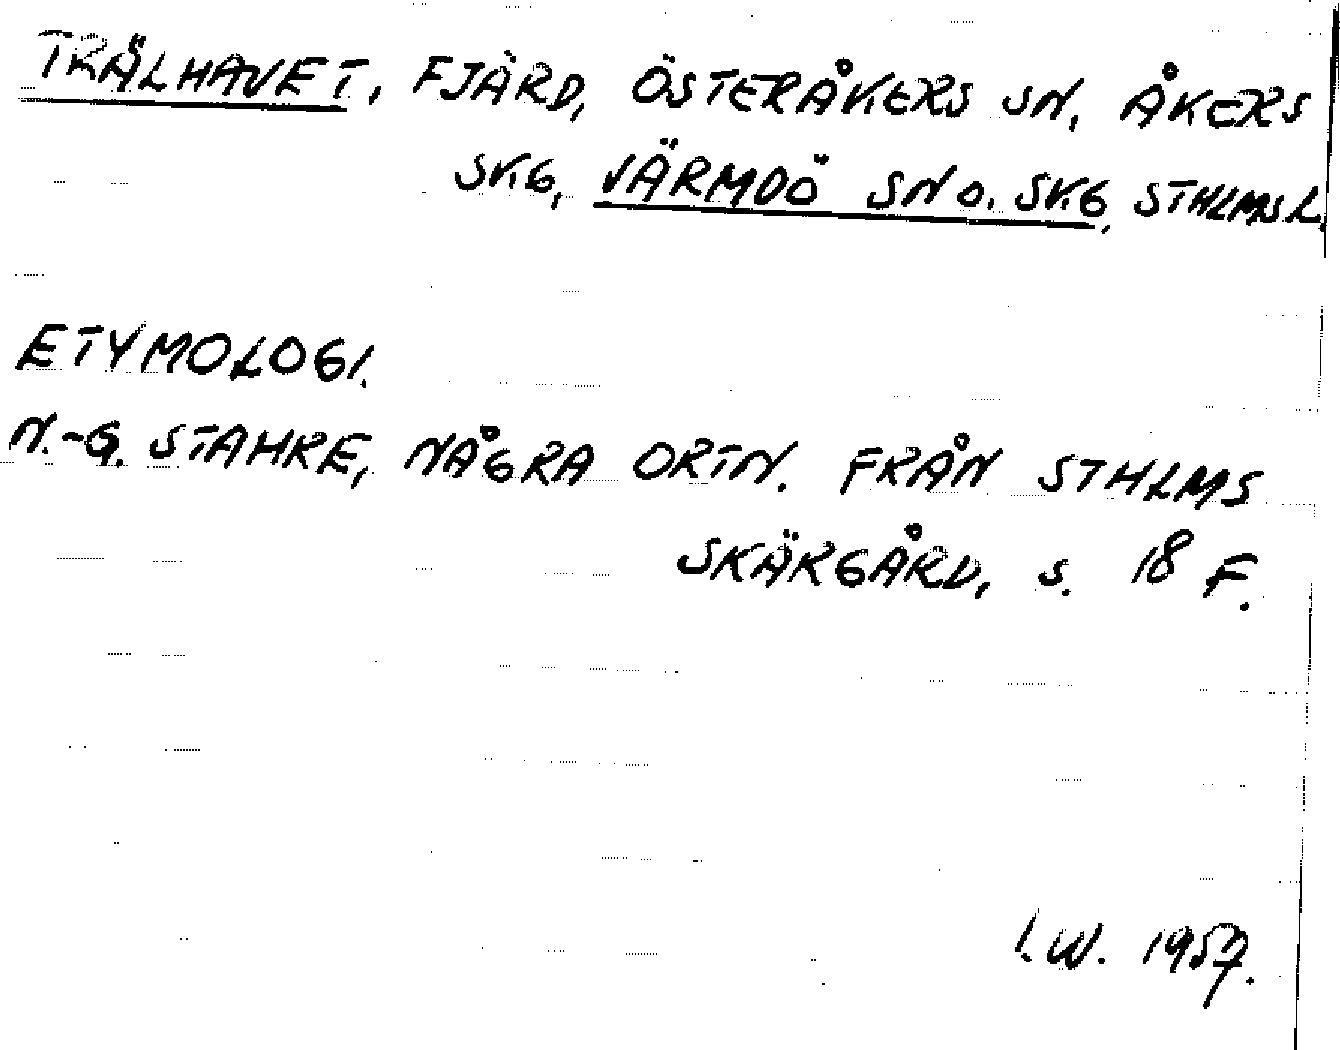 TRÄLHAVET, FJÄRD, ÖSTERÅKERS SN, ÅKERS
SKG, VÄRMDÖ SN O. SKG, STHLMS L.
ETYMOLOGI.
N.-G. STAHRE, NÅGRA ORTN. FRÅN STHLMS
SKÄRGÅRD, S. 18 F.
I.W. 1957.